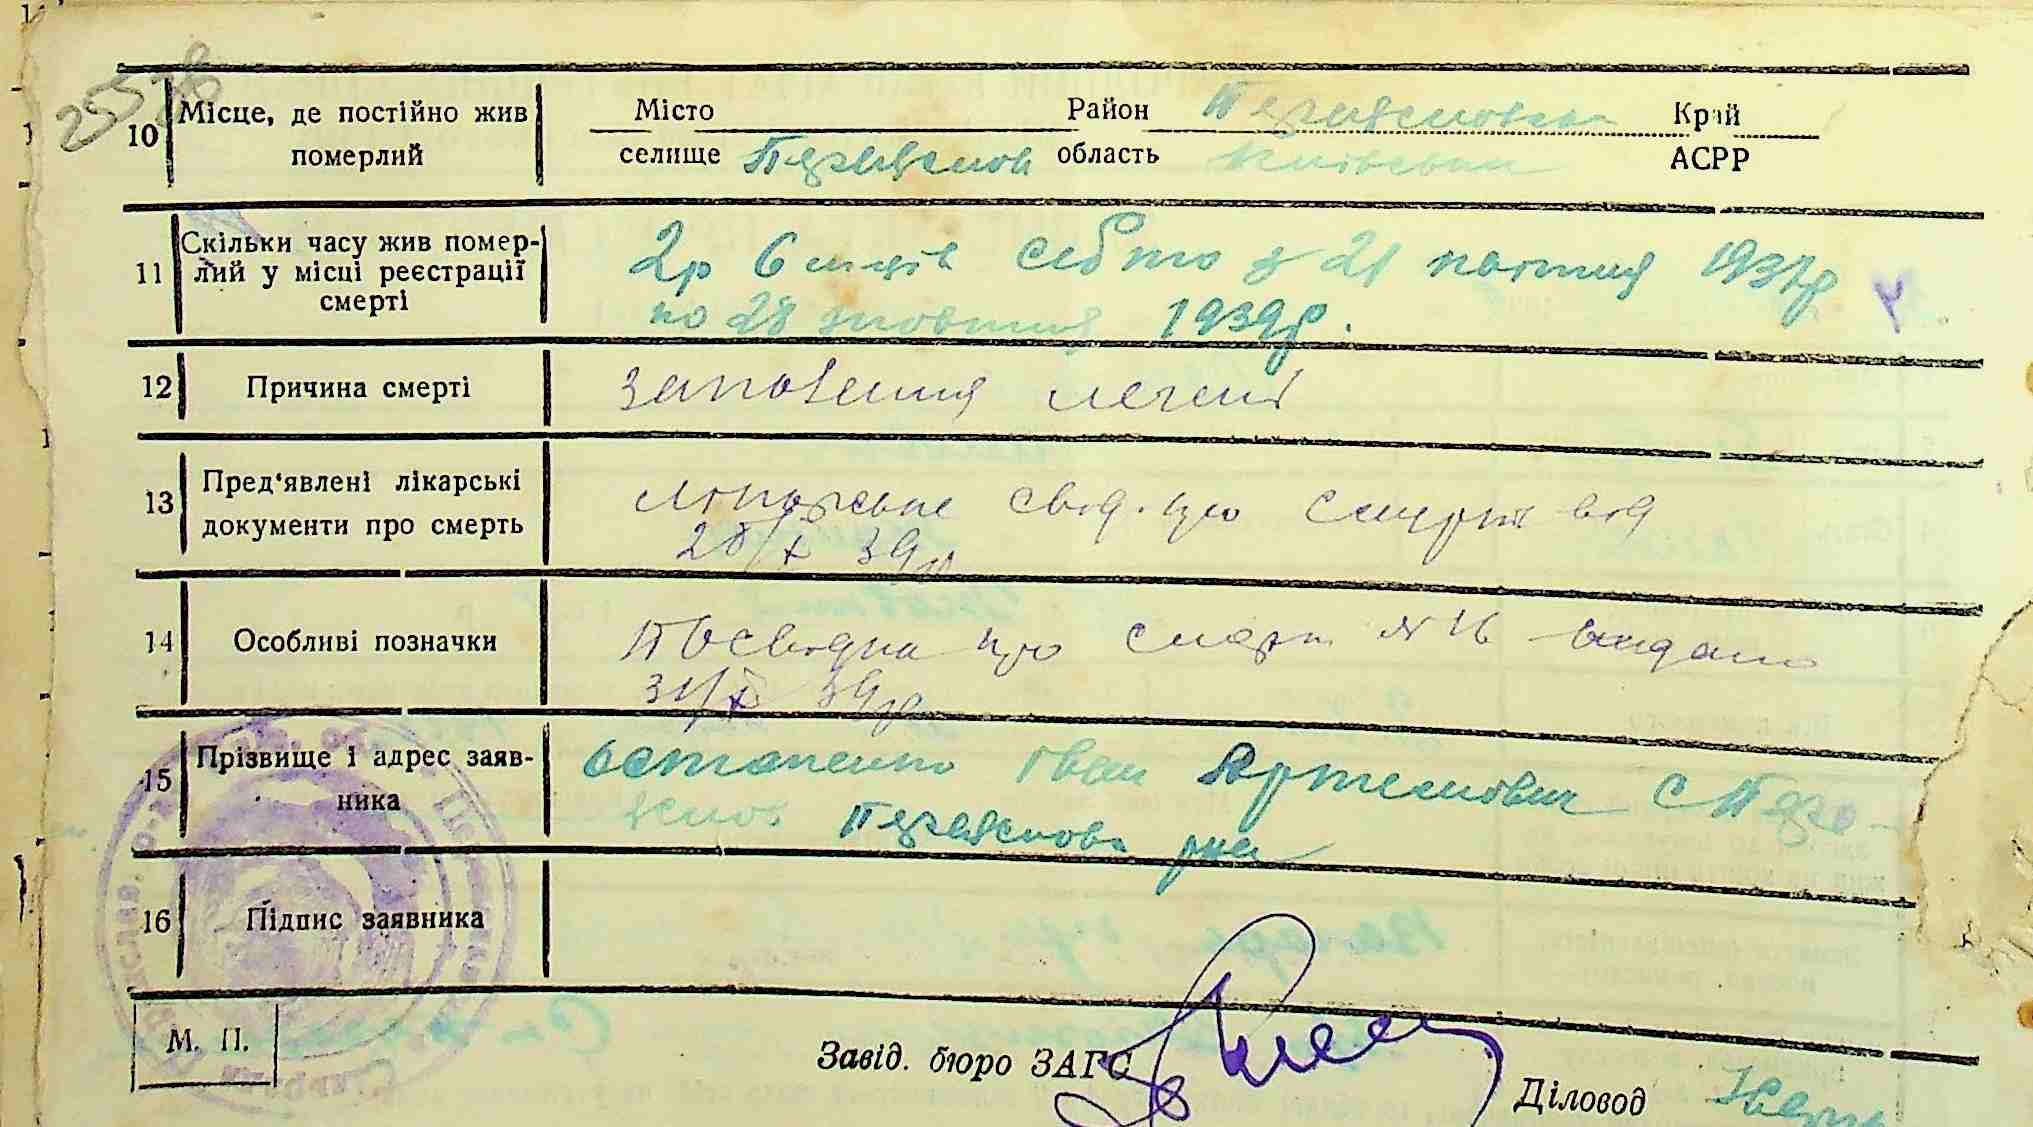 10 Місце, де постійно жив померлий
Місто Район Край
селище область Київська АСРР
11 Скільки часу жив помер-
лий у місці реєстрації
смерті
2р 6 місців себто з 21 квітня 1937р
по 28 жовтня 1939р.
12 Причина смерті
Запалення легенів
13 Пред'явлені лікарські
документи про смерть
лікарське свід. про смерть від
28/X 39р
14 Особливі позначки
Посвідка про смерть № 16 видана
31/X 39р
15 Прізвище і адрес заяв-
ника
Остапенко Іван Артемович с
16 Підпис заявника
М. П.
Завід. бюро ЗАГС
Діловод